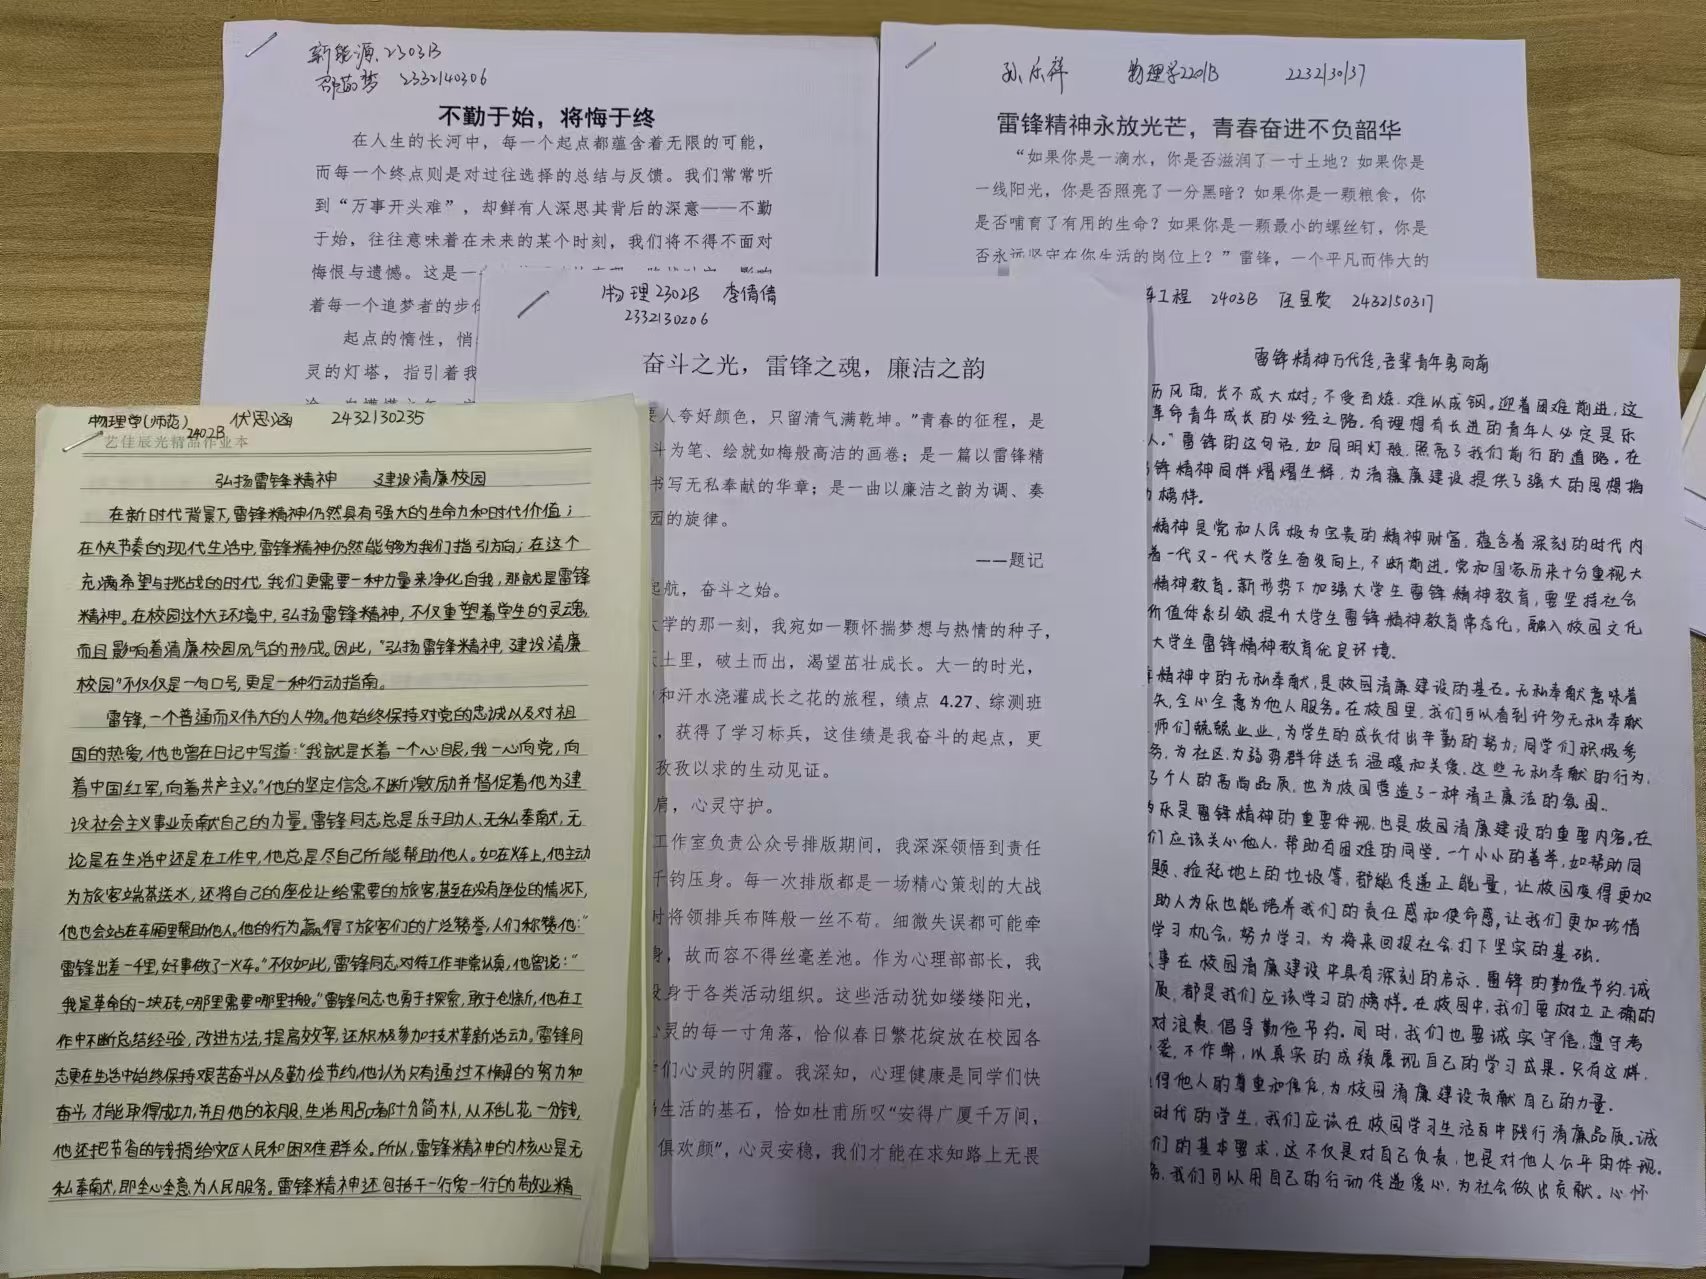 新能源 2303B
2332140306
不勤于始，将悔于终
在人生的长河中，每一个起点都蕴含着无限的可能，
而每一个终点则是对过往选择的总结与反馈。我们常常听
到“万事开头难”，却鲜有人深思其背后的深意——不勤
于始，往往意味着在未来的某个时刻，我们将不得不面对
悔恨与遗憾。这是一
着每一个追梦者的步
起点的惰性，悄
灵的灯塔，指引着我
孙乐祥 物理学2201B 2232130137
雷锋精神永放光芒，青春奋进不负韶华
“如果你是一滴水，你是否滋润了一寸土地？如果你是
一线阳光，你是否照亮了一分黑暗？如果你是一颗粮食，你
是否哺育了有用的生命？如果你是一颗最小的螺丝钉，你是
否永远坚守在你生活的岗位上？”雷锋，一个平凡而伟大的
物理学(师范) 2402B 伏思涵 2432130235
艺佳辰光精品作业本
弘扬雷锋精神 建设清廉校园
在新时代背景下,雷锋精神仍然具有强大的生命力和时代价值；
在快节奏的现代生活中,雷锋精神仍然能够为我们指引方向；在这个
充满希望与挑战的时代,我们更需要一种力量来净化自我，那就是雷锋
精神。在校园这个大环境中，弘扬雷锋精神，不仅重塑着学生的灵魂,
而且影响着清廉校园风气的形成。因此，“弘扬雷锋精神，建设清廉
校园”不仅仅是一句口号,更是一种行动指南。
雷锋,一个普通而又伟大的人物。他始终保持对党的忠诚以及对祖
国的热爱，他也曾在日记中写道：“我就是长着一个心眼,我一心向党，向
着中国红军,向着共产主义。”他的坚定信念,不断激励并督促着他为建
设社会主义事业贡献自己的力量。雷锋同志总是乐于助人、无私奉献，无
论是在生活中还是在工作中，他总是尽自己所能帮助他人。如在火车上，他主动
为旅客端茶送水，还将自己的座位让给需要的旅客,甚至在没有座位的情况下,
他也会站在车厢里帮助他人。他的行为赢得了旅客们的广泛赞誉，人们称赞他：“
雷锋出差一千里，好事做了一火车。”不仅如此，雷锋同志对待工作非常认真，他曾说：“
我是革命的一块砖,哪里需要哪里搬。”雷锋同志也勇于探索，敢于创新，他在工
作中不断总结经验，改进方法，提高效率，还积极参加技术革新活动。雷锋同
志更在生活中始终保持艰苦奋斗以及勤俭节约,他认为只有通过不懈的努力和
奋斗,才能取得成功,并且他的衣服、生活用品都十分简朴，从不乱花一分钱,
他还把节省的钱捐给灾区人民和困难群众。所以，雷锋精神的核心是无
私奉献,即全心全意为人民服务。雷锋精神还包括干一行爱一行的敬业精
物理2302B 李倩倩
2332130206
奋斗之光，雷锋之魂，廉洁之韵
要人夸好颜色，只留清气满乾坤。”青春的征程，是
斗为笔、绘就如梅般高洁的画卷；是一篇以雷锋精
书写无私奉献的华章；是一曲以廉洁之韵为调、奏
园的旋律。
——题记
起航，奋斗之始。
大学的那一刻，我宛如一颗怀揣梦想与热情的种子，
土里，破土而出，渴望茁壮成长。大一的时光，
和汗水浇灌成长之花的旅程，绩点 4.27、综测班
，获得了学习标兵，这佳绩是我奋斗的起点，更
孜孜以求的生动见证。
肩，心灵守护。
工作室负责公众号排版期间，我深深领悟到责任
千钧压身。每一次排版都是一场精心策划的大战
时将领排兵布阵般一丝不苟。细微失误都可能牵
身，故而容不得丝毫差池。作为心理部部长，我
投身于各类活动组织。这些活动犹如缕缕阳光，
心灵的每一寸角落，恰似春日繁花绽放在校园各
们心灵的阴霾。我深知，心理健康是同学们快
生活的基石，恰如杜甫所叹“安得广厦千万间，
俱欢颜”，心灵安稳，我们才能在求知路上无畏
工程 2403B 2432150317
雷锋精神万代传,吾辈青年勇向前
历风雨,长不成大树；不受百炼,难以成钢。迎着困难前进,这
革命青年成长的必经之路。有理想有长进的青年人必定是乐
人。”雷锋的这句话,如同明灯般,照亮了我们前行的道路。在
锋精神同样熠熠生辉,为清廉建设提供了强大的思想指
榜样。
精神是党和人民极为宝贵的精神财富,蕴含着深刻的时代内
着一代又一代大学生奋发向上,不断前进。党和国家历来十分重视大
精神教育。新形势下加强大学生雷锋精神教育,要坚持社会
价值体系引领,提升大学生雷锋精神教育常态化,融入校园文化
大学生雷锋精神教育优良环境.
精神中的无私奉献,是校园清廉建设的基石。无私奉献意味着
失,全心全意为他人服务。在校园里,我们可以看到许多无私奉献
师们兢兢业业,为学生的成长付出辛勤的努力;同学们积极参
务,为社区,为弱势群体送去温暖和关爱,这些无私奉献的行为,
了个人的高尚品质,也为校园营造了一种清正廉洁的氛围.
为乐是雷锋精神的重要体现,也是校园清廉建设的重要内容。在
们应该关心他人,帮助有困难的同学,一个小小的善举,如帮助同
题、捡起地上的垃圾等,都能传递正能量,让校园变得更加
助人为乐也能培养我们的责任感和使命感,让我们更加珍惜
学习机会,努力学习,为将来回报社会打下坚实的基础.
事在校园清廉建设中具有深刻的启示,雷锋的勤俭节约、诚
质,都是我们应该学习的榜样。在校园中,我们要树立正确的
对浪费,倡导勤俭节约。同时,我们也要诚实守信,遵守考
袭,不作弊,以真实的成绩展现自己的学习成果。只有这样,
得他人的尊重和信任,为校园清廉建设贡献自己的力量.
时代的学生,我们应该在校园学习生活当中践行清廉品质。诚
们的基本要求,这不仅是对自己负责,也是对他人公平的体现。
我们可以用自己的行动传递爱心,为社会做出贡献。心怀